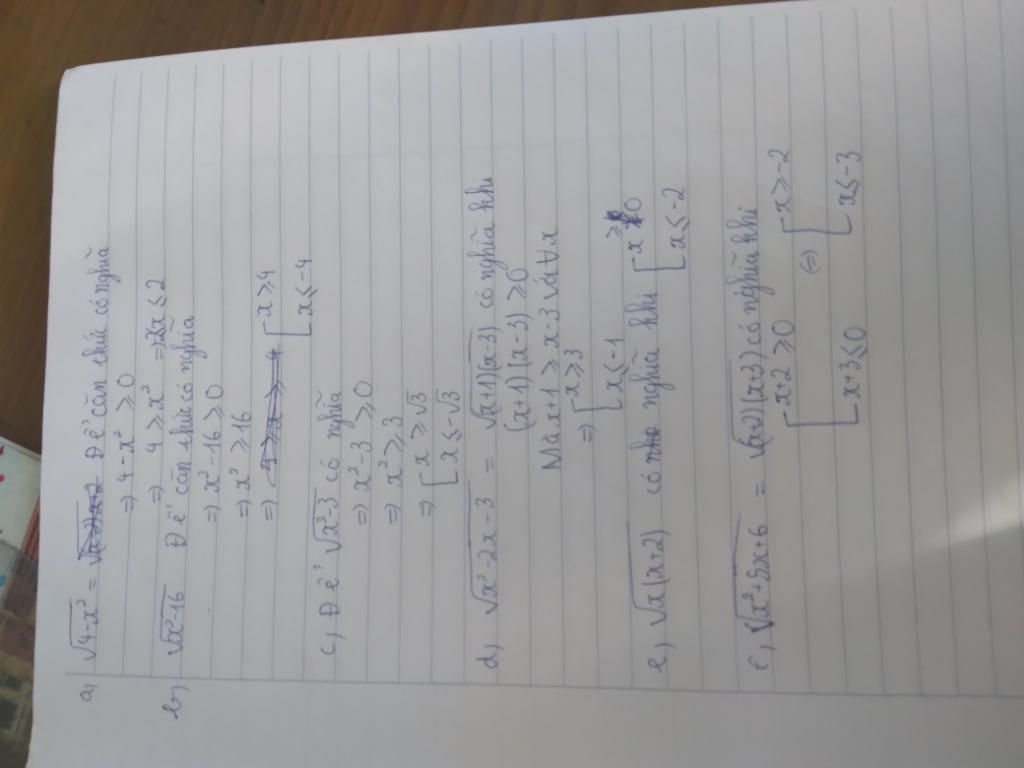 a) √4-x² = Để căn thức có nghĩa
=> 4-x² ≥ 0
=> 4 ≥ x² => x ≤ 2
b) √x²-16 Để căn thức có nghĩa
=> x²-16 ≥ 0
=> x² ≥ 16
=> [x ≥ 4
[x ≤ -4
c) Để √x²-3 có nghĩa
=> x²-3 ≥ 0
=> x² ≥ 3
=> [x ≥ √3
[x ≤ -√3
d) √x²-2x-3 = √(x+1)(x-3) có nghĩa khi
(x+1)(x-3) ≥ 0
Mà x+1 ≥ x-3 với ∀x
=> [x ≥ 3
[x ≤ -1
e) √x(x+2) có nghĩa khi [x ≥ 0
[x ≤ -2
f) √x²-5x+6 = √(x+2)(x+3) có nghĩa khi
[x+2 ≥ 0 (=) [x ≥ -2
[x+3 ≤ 0 [x ≤ -3